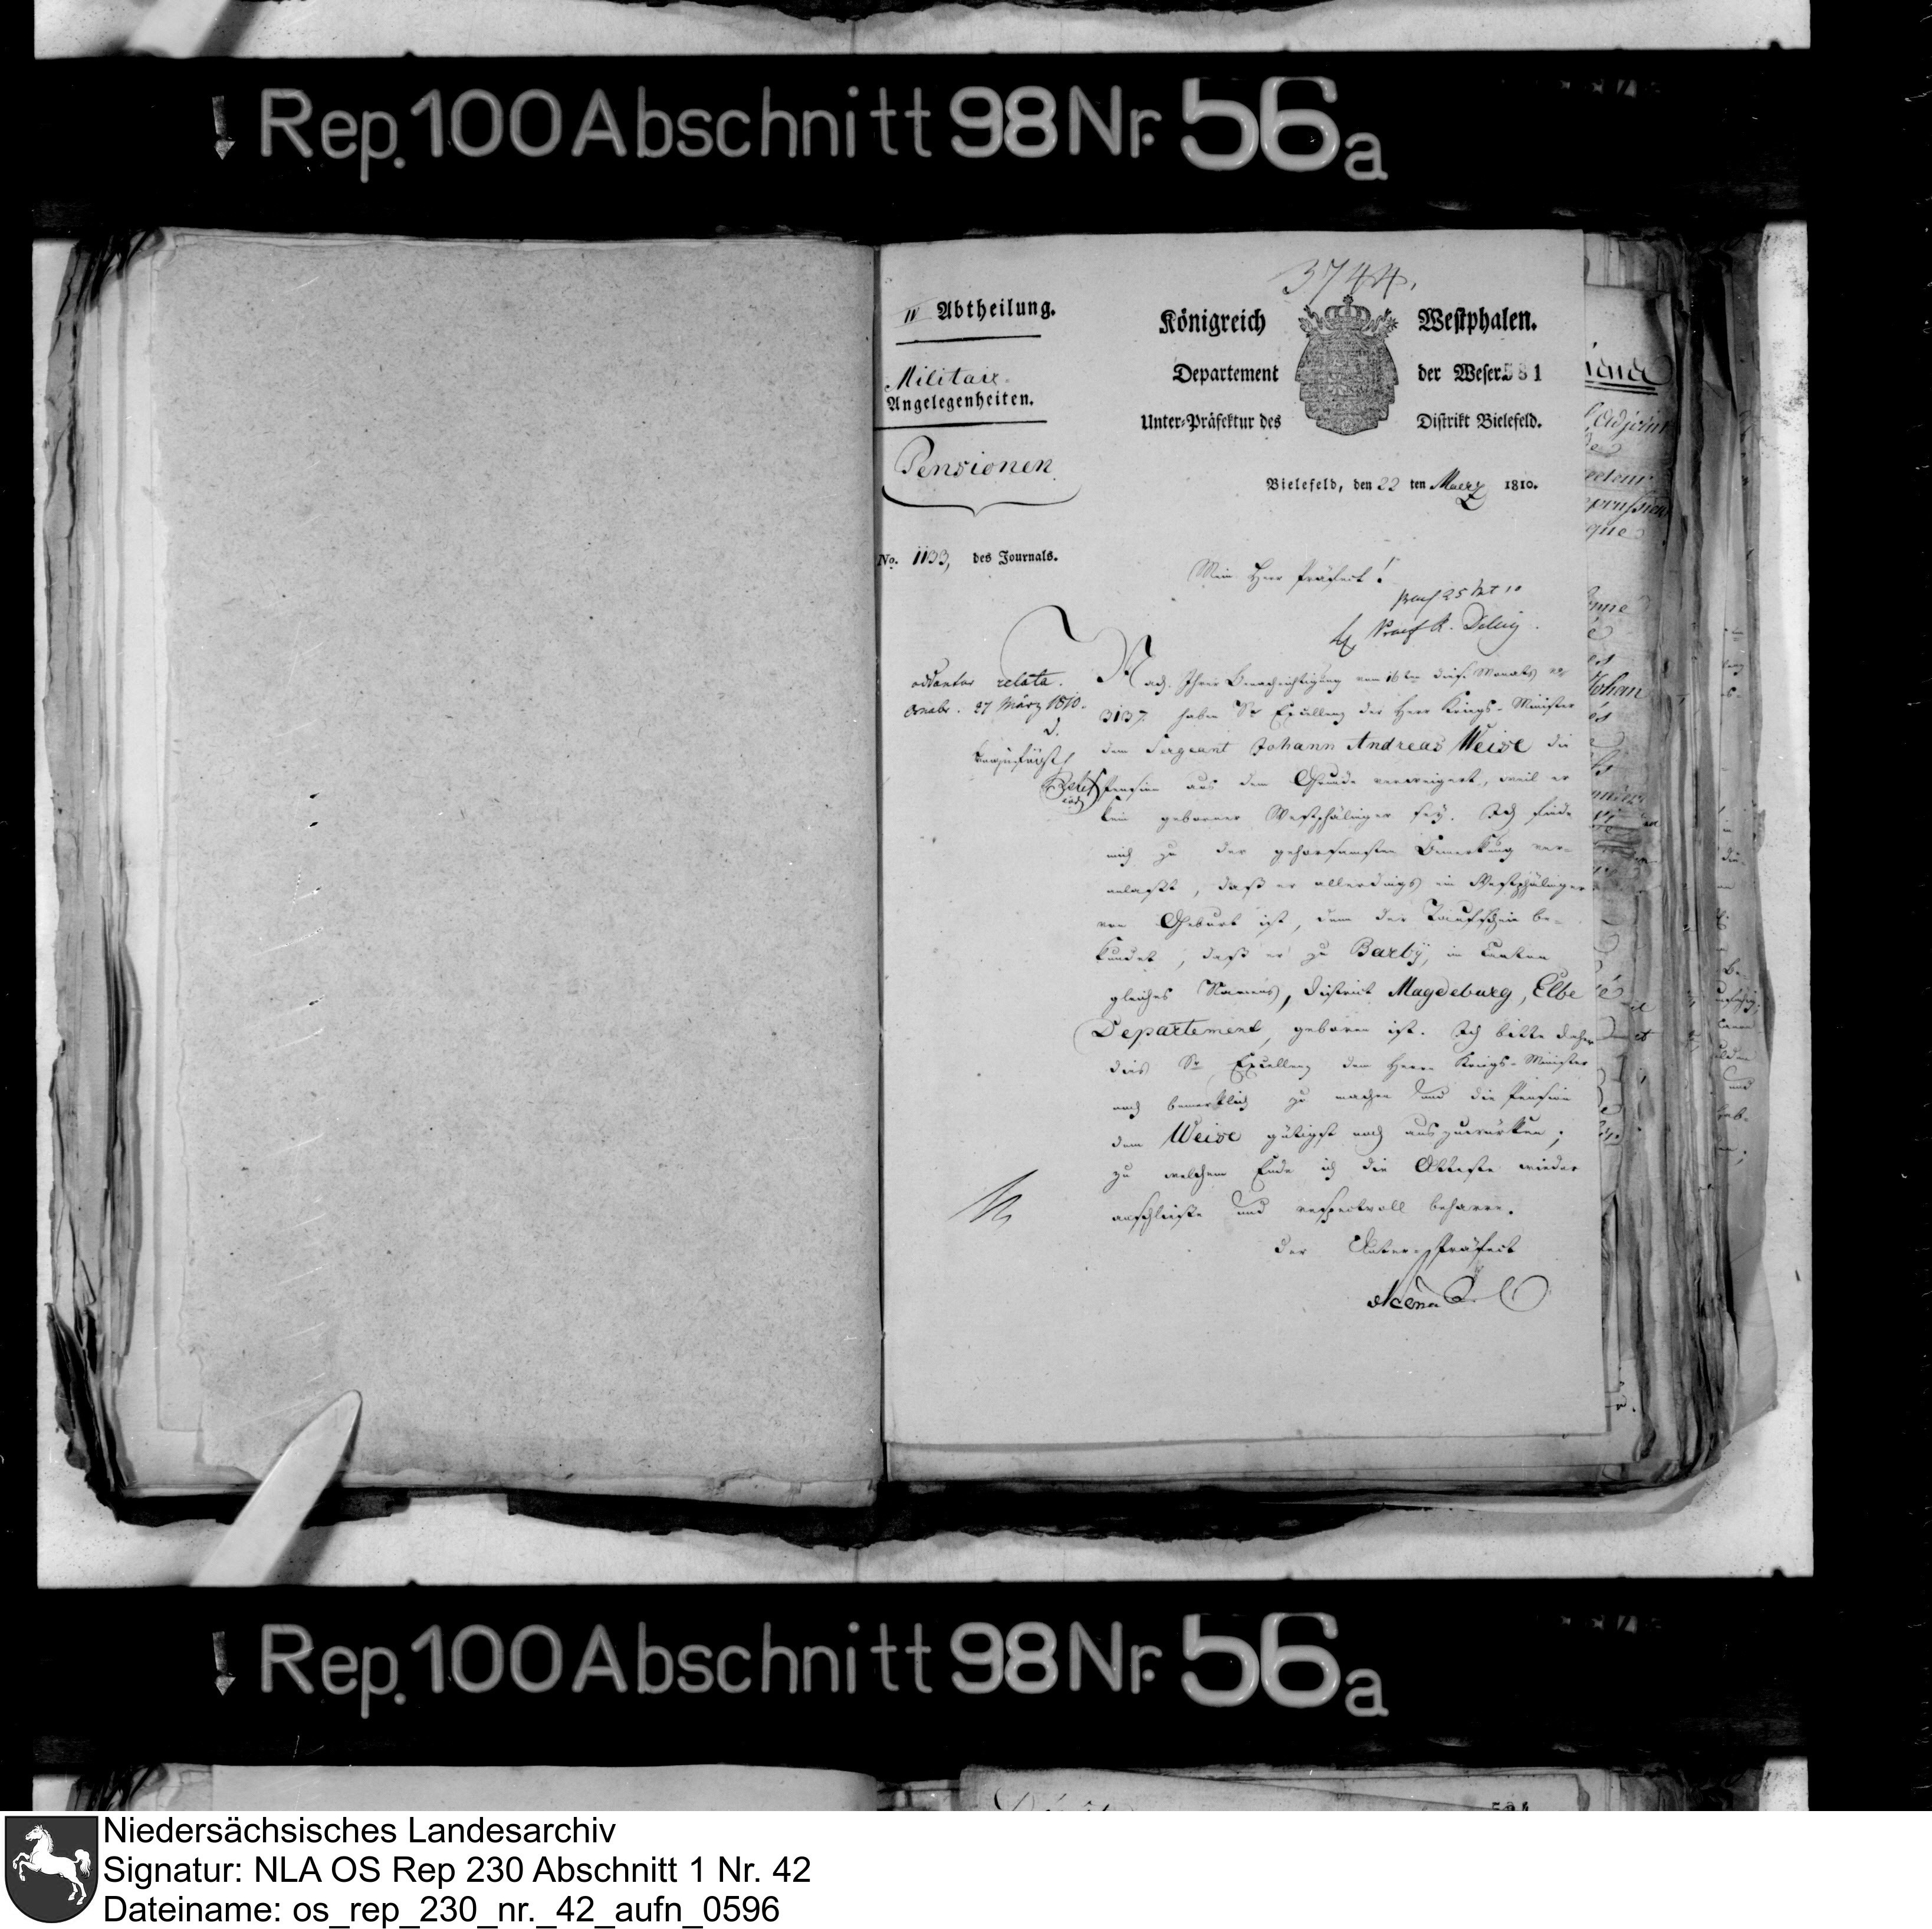 Rep. 100 Abschnitt 98 Nr. 56a
3744.
IV Abtheilung.
Königreich Westphalen.
Militair
Angelegenheiten.
Departement der Weser 581
Unter-Präfektur des Distrikt Bielefeld.
Pensionen
Bielefeld, den 22 ten Maerz 1810.
No. 1133, des Journals.
Mein Herr Präfect!
praes 25 Mrt 10
addantur relata.
Osnabr. 27 März 1810.
Nach Ihrer Benachrichtigung vom 16ten dieses Monats no
3137. haben Sr Excellenz der Herr Kriegs-Minister
dem Sergeant Johann Andreas Weise die
Pension aus dem Grunde verweigert, weil er
kein geborner Westphälinger sey. Ich finde
mich zu der gehorsamsten Bemerkung ver-
anlaßt, daß er allerdings ein Westphälinger
von Geburt ist, denn der Taufschein be-
kundet, daß er zu Barby, im Canton
gleiches Namens, District Magdeburg, Elbe
Departement, geboren ist. Ich bitte daher
dies Sr Excellenz dem Herrn Kriegs-Minister
noch bemerklich zu machen und die Pension
dem Weise gütigst noch auszuwürken;
zu welchem Ende ich die Atteste wieder
anschließe und respectvoll beharre.
Der Unter-Präfect
Rep. 100 Abschnitt 98 Nr. 56a
Niedersächsisches Landesarchiv
Signatur: NLA OS Rep 230 Abschnitt 1 Nr. 42
Dateiname: os_rep_230_nr._42_aufn_0596